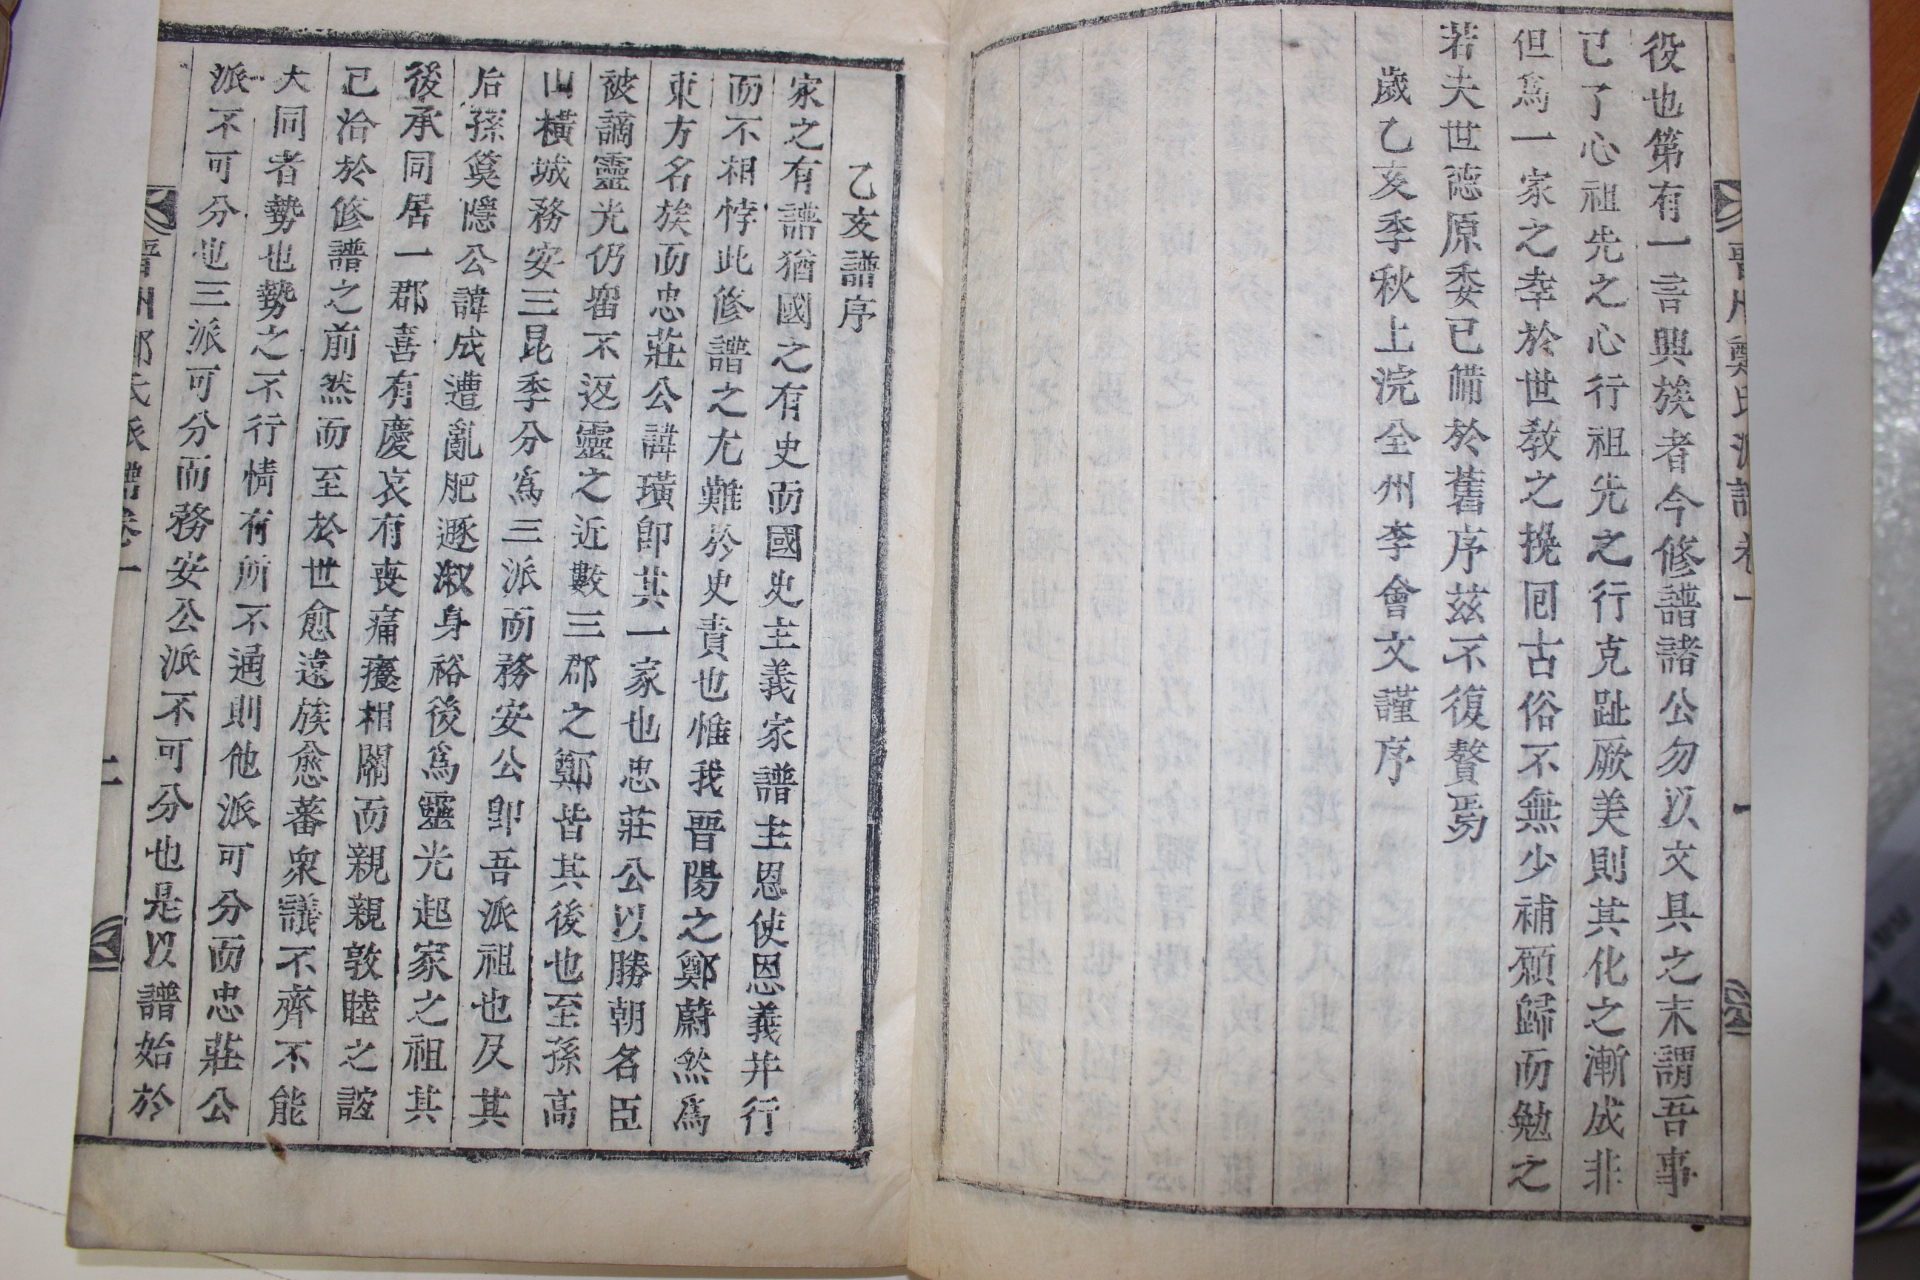 役也第有一言興族者今修譜諸公勿以文具之末謂吾事
已了心祖先之心行祖先之行克趾厥美則其化之漸成非
但爲一家之幸於世教之挽回古俗不無少補願歸而勉之
若夫世德原委已備於舊序茲不復贅焉
歲乙亥季秋上浣全州李會文謹序
乙亥譜序
家之有譜猶國之有史而國史主義家譜主恩使恩義并行
而不相悖此修譜之尤難於史責也惟我晋陽之鄭蔚然爲
東方名族而忠莊公諱璜卽其一家也忠莊公以勝朝名臣
被謫靈光仍畱不返靈之近數三郡之鄭皆其後也至孫高
山橫城務安三昆季分爲三派而務安公卽吾派祖也及其
后孫奠隱公諱成遭亂肥遯淑身裕後爲靈光起家之祖其
後承同居一郡喜有慶哀有喪痛癢相關而親親敦睦之誼
已洽於修譜之前然而至於世愈遠族愈蕃衆議不齊不能
大同者勢也勢之不行情有所不通則他派可分而忠莊公
派不可分也三派可分而務安公派不可分也是以譜始於
晋州鄭氏派譜卷一 二